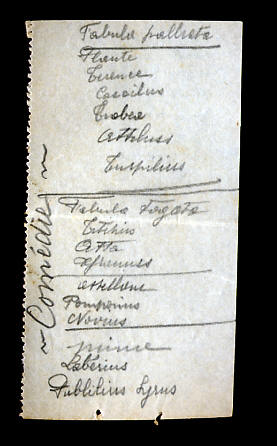 Fabula palliata
Plaute
Térence
Caecilius
Trabea
Attilius
Turpilius
Fabula togata
Titinius
Atta
Afranius
Atellane
Pomponius
Novius
mime
Labérius
Publilius Syrus
~ Comédie ~